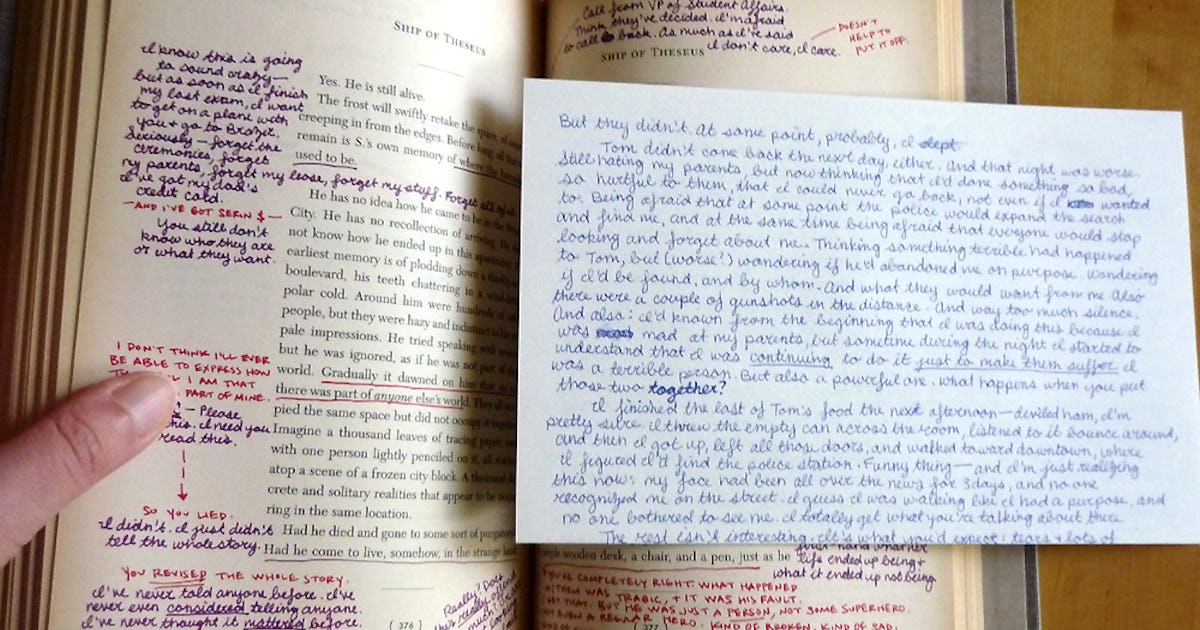 SHIP OF THESEUS
I know this is going
to sound crazy—
but as soon as I finish
my last exam, I want
to get on a plane with
you + go to Brazil.
Seriously—forget the
ceremonies, forget
my parents, forget my lease, forget my stuff. Forget all of it.
I've got my dad's
credit card.
—AND I'VE GOT SERIN $—
You still don't
know who they are
or what they want.
Yes. He is still alive.
The frost will swiftly retake the space,
creeping in from the edges. Before long, all that
remain is S.'s own memory of where the
used to be.
He has no idea how he came to be in the
City. He has no recollection of arriving. He
not know how he ended up in this apartment.
earliest memory is of plodding down a
boulevard, his teeth chattering in a
polar cold. Around him were hundreds of
people, but they were hazy and indistinct
pale impressions. He tried speaking with
but he was ignored, as if he was not part of
world. Gradually it dawned on him that
there was part of anyone else's world. They all
pied the same space but did not occupy it
Imagine a thousand leaves of tracing paper,
with one person lightly penciled on it, all
atop a scene of a frozen city block. A thousand
crete and solitary realities that appear to be
ring in the same location.
Had he died and gone to some sort of purgatory
Had he come to live, somehow, in the strange
I DON'T THINK I'LL EVER
BE ABLE TO EXPRESS HOW
I AM THAT
PART OF MINE.
— Please
this. I need you
read this.
SO YOU LIED.
I didn't. I just didn't
tell the whole story.
YOU REVISED THE WHOLE STORY.
I've never told anyone before. I've
never even considered telling anyone.
I've never thought it mattered before.
Really? Does
this really offend
much
{ 376 }
Call from VP of Student Affairs.
Think they've decided. I'm afraid
to call back. As much as I've said
I don't care, I care.
DOESN'T
HELP TO
PUT IT OFF.
SHIP OF THESEUS
But they didn't. At some point, probably, I slept.
Tom didn't come back the next day, either. And that night was worse.
Still hating my parents, but now thinking that I'd done something so bad,
so hurtful to them, that I could never go back, not even if I wanted
to. Being afraid that at some point the police would expand the search
and find me, and at the same time being afraid that everyone would stop
looking and forget about me. Thinking something terrible had happened
to Tom, but (worse!) wondering if he'd abandoned me on purpose. Wondering
if I'd be found, and by whom. And what they would want from me. Also
there were a couple of gunshots in the distance. And way too much silence.
And also: I'd known from the beginning that I was doing this because I
was mad at my parents, but sometime during the night I started to
understand that I was continuing to do it just to make them suffer. I
was a terrible person. But also a powerful one. What happens when you put
those two together?
I finished the last of Tom's food the next afternoon—deviled ham, I'm
pretty sure. I threw the empty can across the room, listened to it bounce around,
and then I got up, left all those doors, and walked toward downtown, where
I figured I'd find the police station. Funny thing—and I'm just realizing
this now: my face had been all over the news for 3 days, and no one
recognized me on the street. I guess I was walking like I had a purpose, and
no one bothered to see me. I totally get what you're talking about there.
The rest isn't interesting. It's what you'd expect: tears + lots of
simple wooden desk, a chair, and a pen, just as he
first-hand what her
life ended up being +
what it ended up not being.
YOU'RE COMPLETELY RIGHT. WHAT HAPPENED
W/THEM WAS TRAGIC, + IT WAS HIS FAULT.
NOT THAT. BUT HE WAS JUST A PERSON, NOT SOME SUPERHERO.
NOT EVEN A REGULAR HERO. KIND OF BROKEN. KIND OF SAD.
{ 377 }